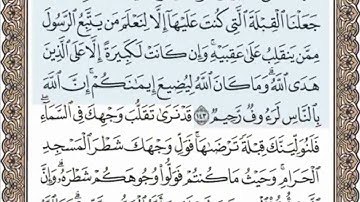 جَعَلْنَا ٱلْقِبْلَةَ ٱلَّتِى كُنتَ عَلَيْهَآ إِلَّا لِنَعْلَمَ مَن يَتَّبِعُ ٱلرَّسُولَ
مِمَّن يَنقَلِبُ عَلَىٰ عَقِبَيْهِ ۚ وَإِن كَانَتْ لَكَبِيرَةً إِلَّا عَلَى ٱلَّذِينَ
هَدَى ٱللَّهُ ۗ وَمَا كَانَ ٱللَّهُ لِيُضِيعَ إِيمَٰنَكُمْ ۚ إِنَّ ٱللَّهَ
بِٱلنَّاسِ لَرَءُوفٌ رَّحِيمٌ ١٤٣ قَدْ نَرَىٰ تَقَلُّبَ وَجْهِكَ فِى ٱلسَّمَآءِ ۖ
فَلَنُوَلِّيَنَّكَ قِبْلَةً تَرْضَىٰهَا ۚ فَوَلِّ وَجْهَكَ شَطْرَ ٱلْمَسْجِدِ
ٱلْحَرَامِ ۚ وَحَيْثُ مَا كُنتُمْ فَوَلُّوا۟ وُجُوهَكُمْ شَطْرَهُۥ ۗ وَإِنَّ